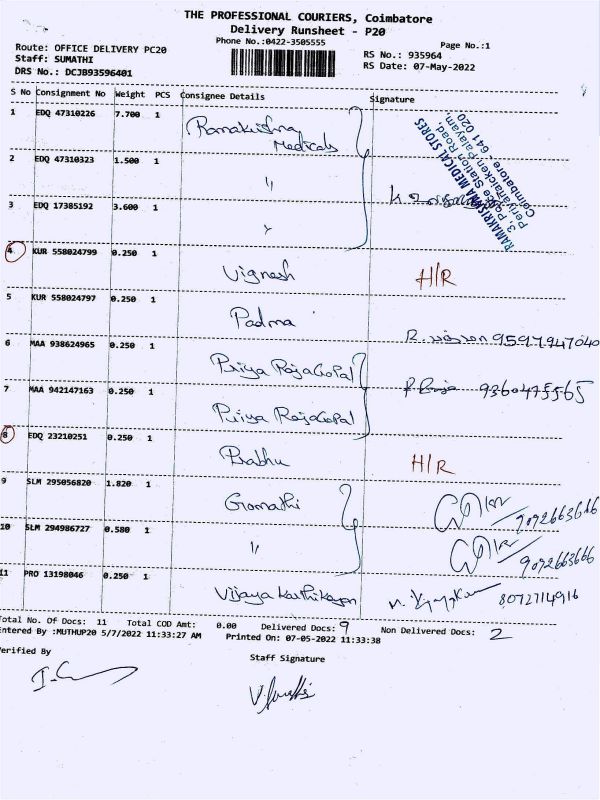 THE PROFESSIONAL COURIERS, Coimbatore
Delivery Runsheet - P20
Phone No.:0422-3505555
Page No.:1
Route: OFFICE DELIVERY PC20
RS No.: 935964
Staff: SUMATHI
RS Date: 07-May-2022
DRS No.: DCJB93596401
S No Consignment No Weight PCS Consignee Details Signature
1 EDQ 47310226 7.700 1 Ramakrishna Medicals
2 EDQ 47310323 1.500 1 "
3 EDQ 17385192 3.600 1 "
RAMAKRISHNA MEDICAL STORES
3, Police Station Road
Periyanaicken Palayam,
Coimbatore - 641 020
4 KUR 558024799 0.250 1 Vignesh H/R
5 KUR 558024797 0.250 1 Padma 9597947040
6 MAA 938624965 0.250 1 Priya RajaGopal
7 MAA 942147163 0.250 1 Priya RajaGopal 9360475565
8 EDQ 23210251 0.250 1 Prabhu H/R
9 SLM 295056820 1.820 1 Gomathi 9092663666
10 SLM 294986727 0.580 1 " 9092663666
11 PRO 13198046 0.250 1 Vijaya Karthikeyan 8072714916
Total No. Of Docs: 11 Total COD Amt: 0.00 Delivered Docs: 9 Non Delivered Docs: 2
Entered By :MUTHUP20 5/7/2022 11:33:27 AM Printed On: 07-05-2022 11:33:38
Verified By
Staff Signature
V. Sumathi